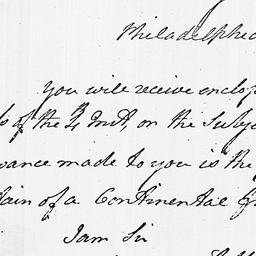 Philadelphia
You will receive enclos
s of the 4th Inst, on the Subje
wance made to you is the
tain of a Continental
I am Sir